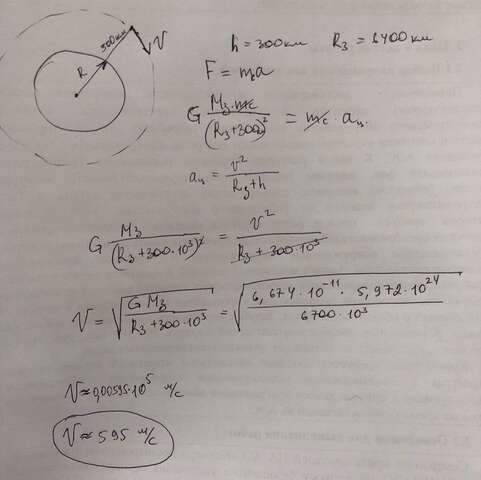 300 км
V
R
h = 300 км R₃ = 6400 км
F = mca
G M₃·mc / (R₃+300)² = mc · aц.
aц = v² / R₃+h
G M₃ / (R₃+300·10³)² = v² / R₃ + 300·10³
V = √(G M₃ / R₃+300·10³) = √(6,674·10⁻¹¹ · 5,972·10²⁴ / 6700·10³)
V ≈ 0,00595·10⁵ м/с
V ≈ 595 м/с